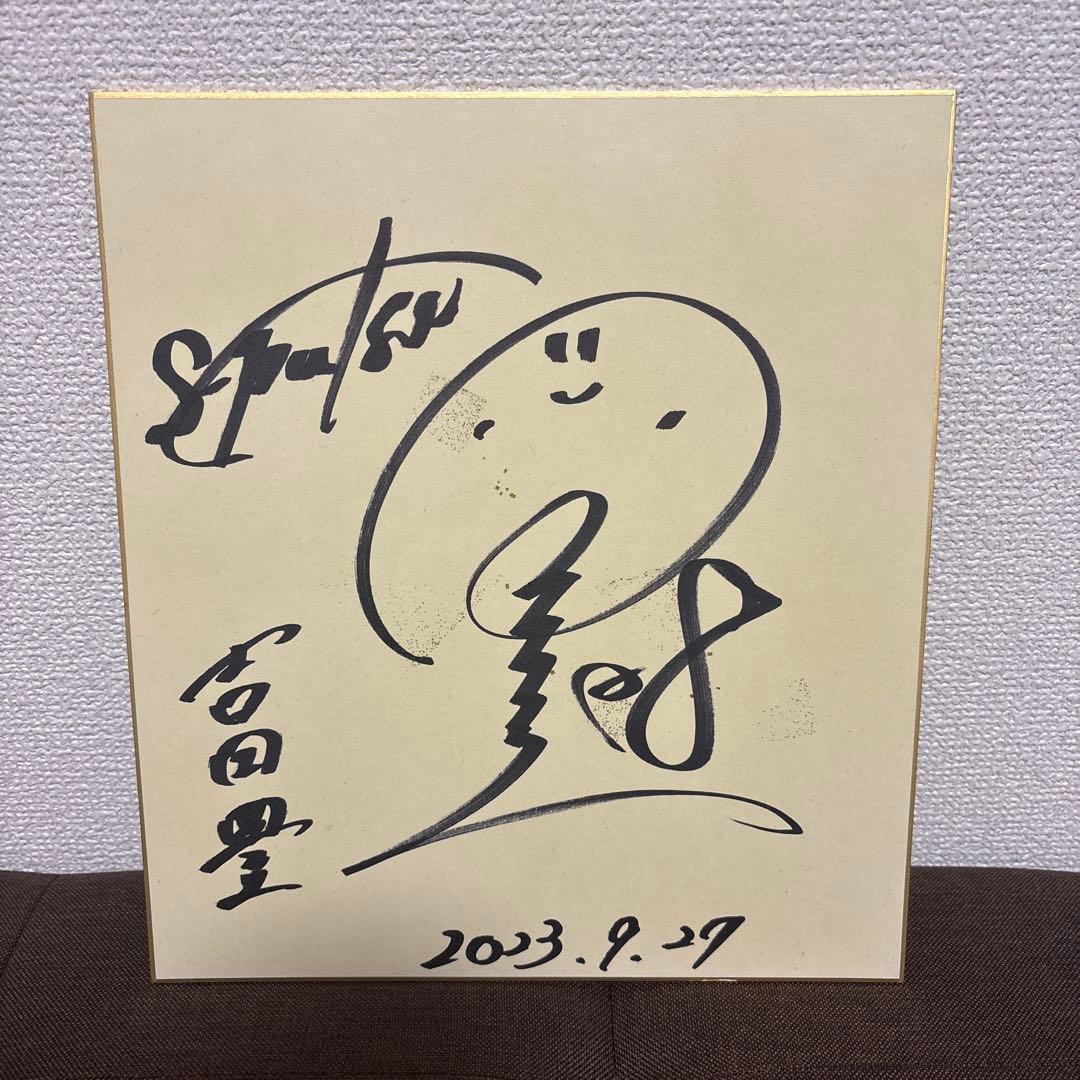 S-Pulse
吉田豊
2023.9.27